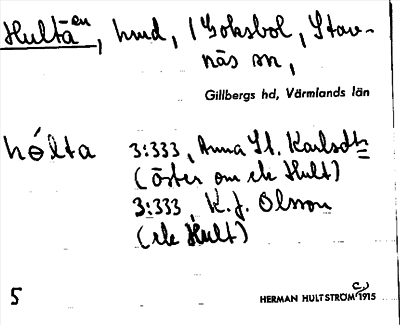 Hultaen, hmd, (Goksbol, Stav-
näs sn,
Gillbergs hd, Värmlands län
hólta 3:333, Anna St. Karlsdtr
(öster om ek Hult)
3:333, K. J. Olsson
(ek Hult)
5 HERMAN HULTSTRÖM 1915